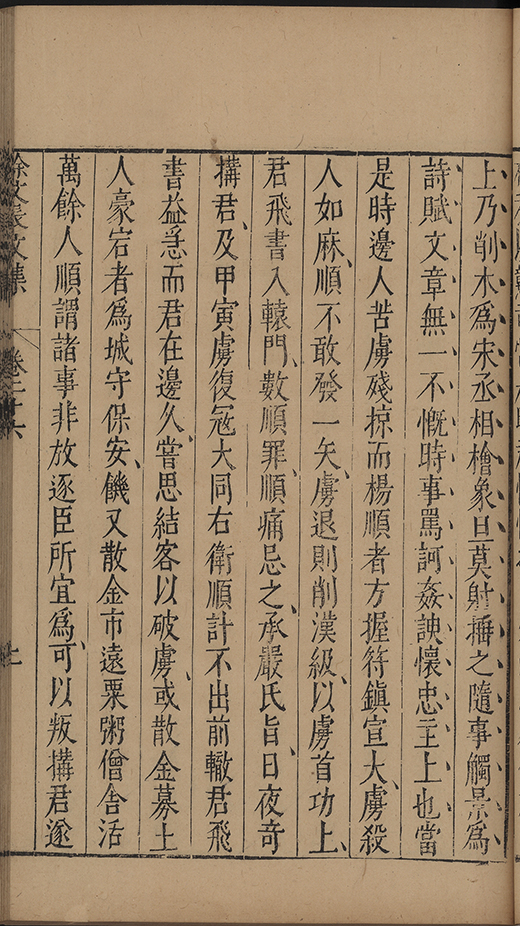 上乃削木爲宋丞相檜象旦莫射捶之隨事觸景爲
詩賦文章無一不慨時事罵訶姦諛懷忠主上也當
是時邊人苦虜殘掠而楊順者方握符鎮宣大虜殺
人如麻順不敢發一矢虜退則削漢級以虜首功上
君飛書入轅門數順罪順痛忌之承嚴氏旨日夜奇
搆君及甲寅虜復冦大同右衛順計不出前轍君飛
書益急而君在邊久嘗思結客以破虜或散金募土
人豪宕者爲城守保安饑又散金市遠粟粥僧舍活
萬餘人順謂諸事非放逐臣所宜爲可以叛搆君遂
徐文長文集 卷二十六 上